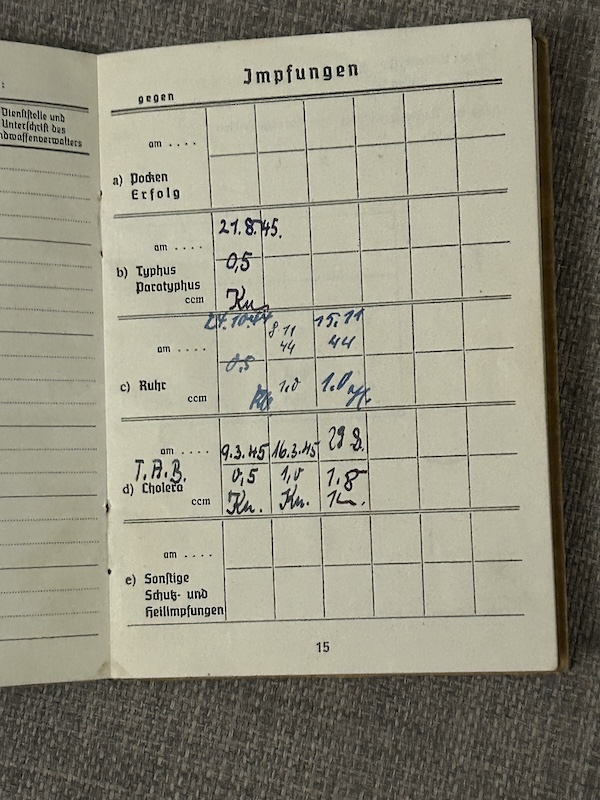 :
Dienststelle und
Unterschrift des
ndwaffenverwalters
Impfungen
gegen
am ....
a) Pocken
Erfolg
21.8.45.
am ....
0,5
b) Typhus
Paratyphus
ccm
Kn.
24.10.44 8 11 44 15.11 44
am ....
0.5 1,0 1.0
c) Ruhr
ccm
am .... 9.3.45 16.3.45 29 8.
T.A.B. 0,5 1,0 1.8
d) Cholera
ccm Kn. Kn. Kn.
am ....
e) Sonstige
Schutz- und
Heilimpfungen
15